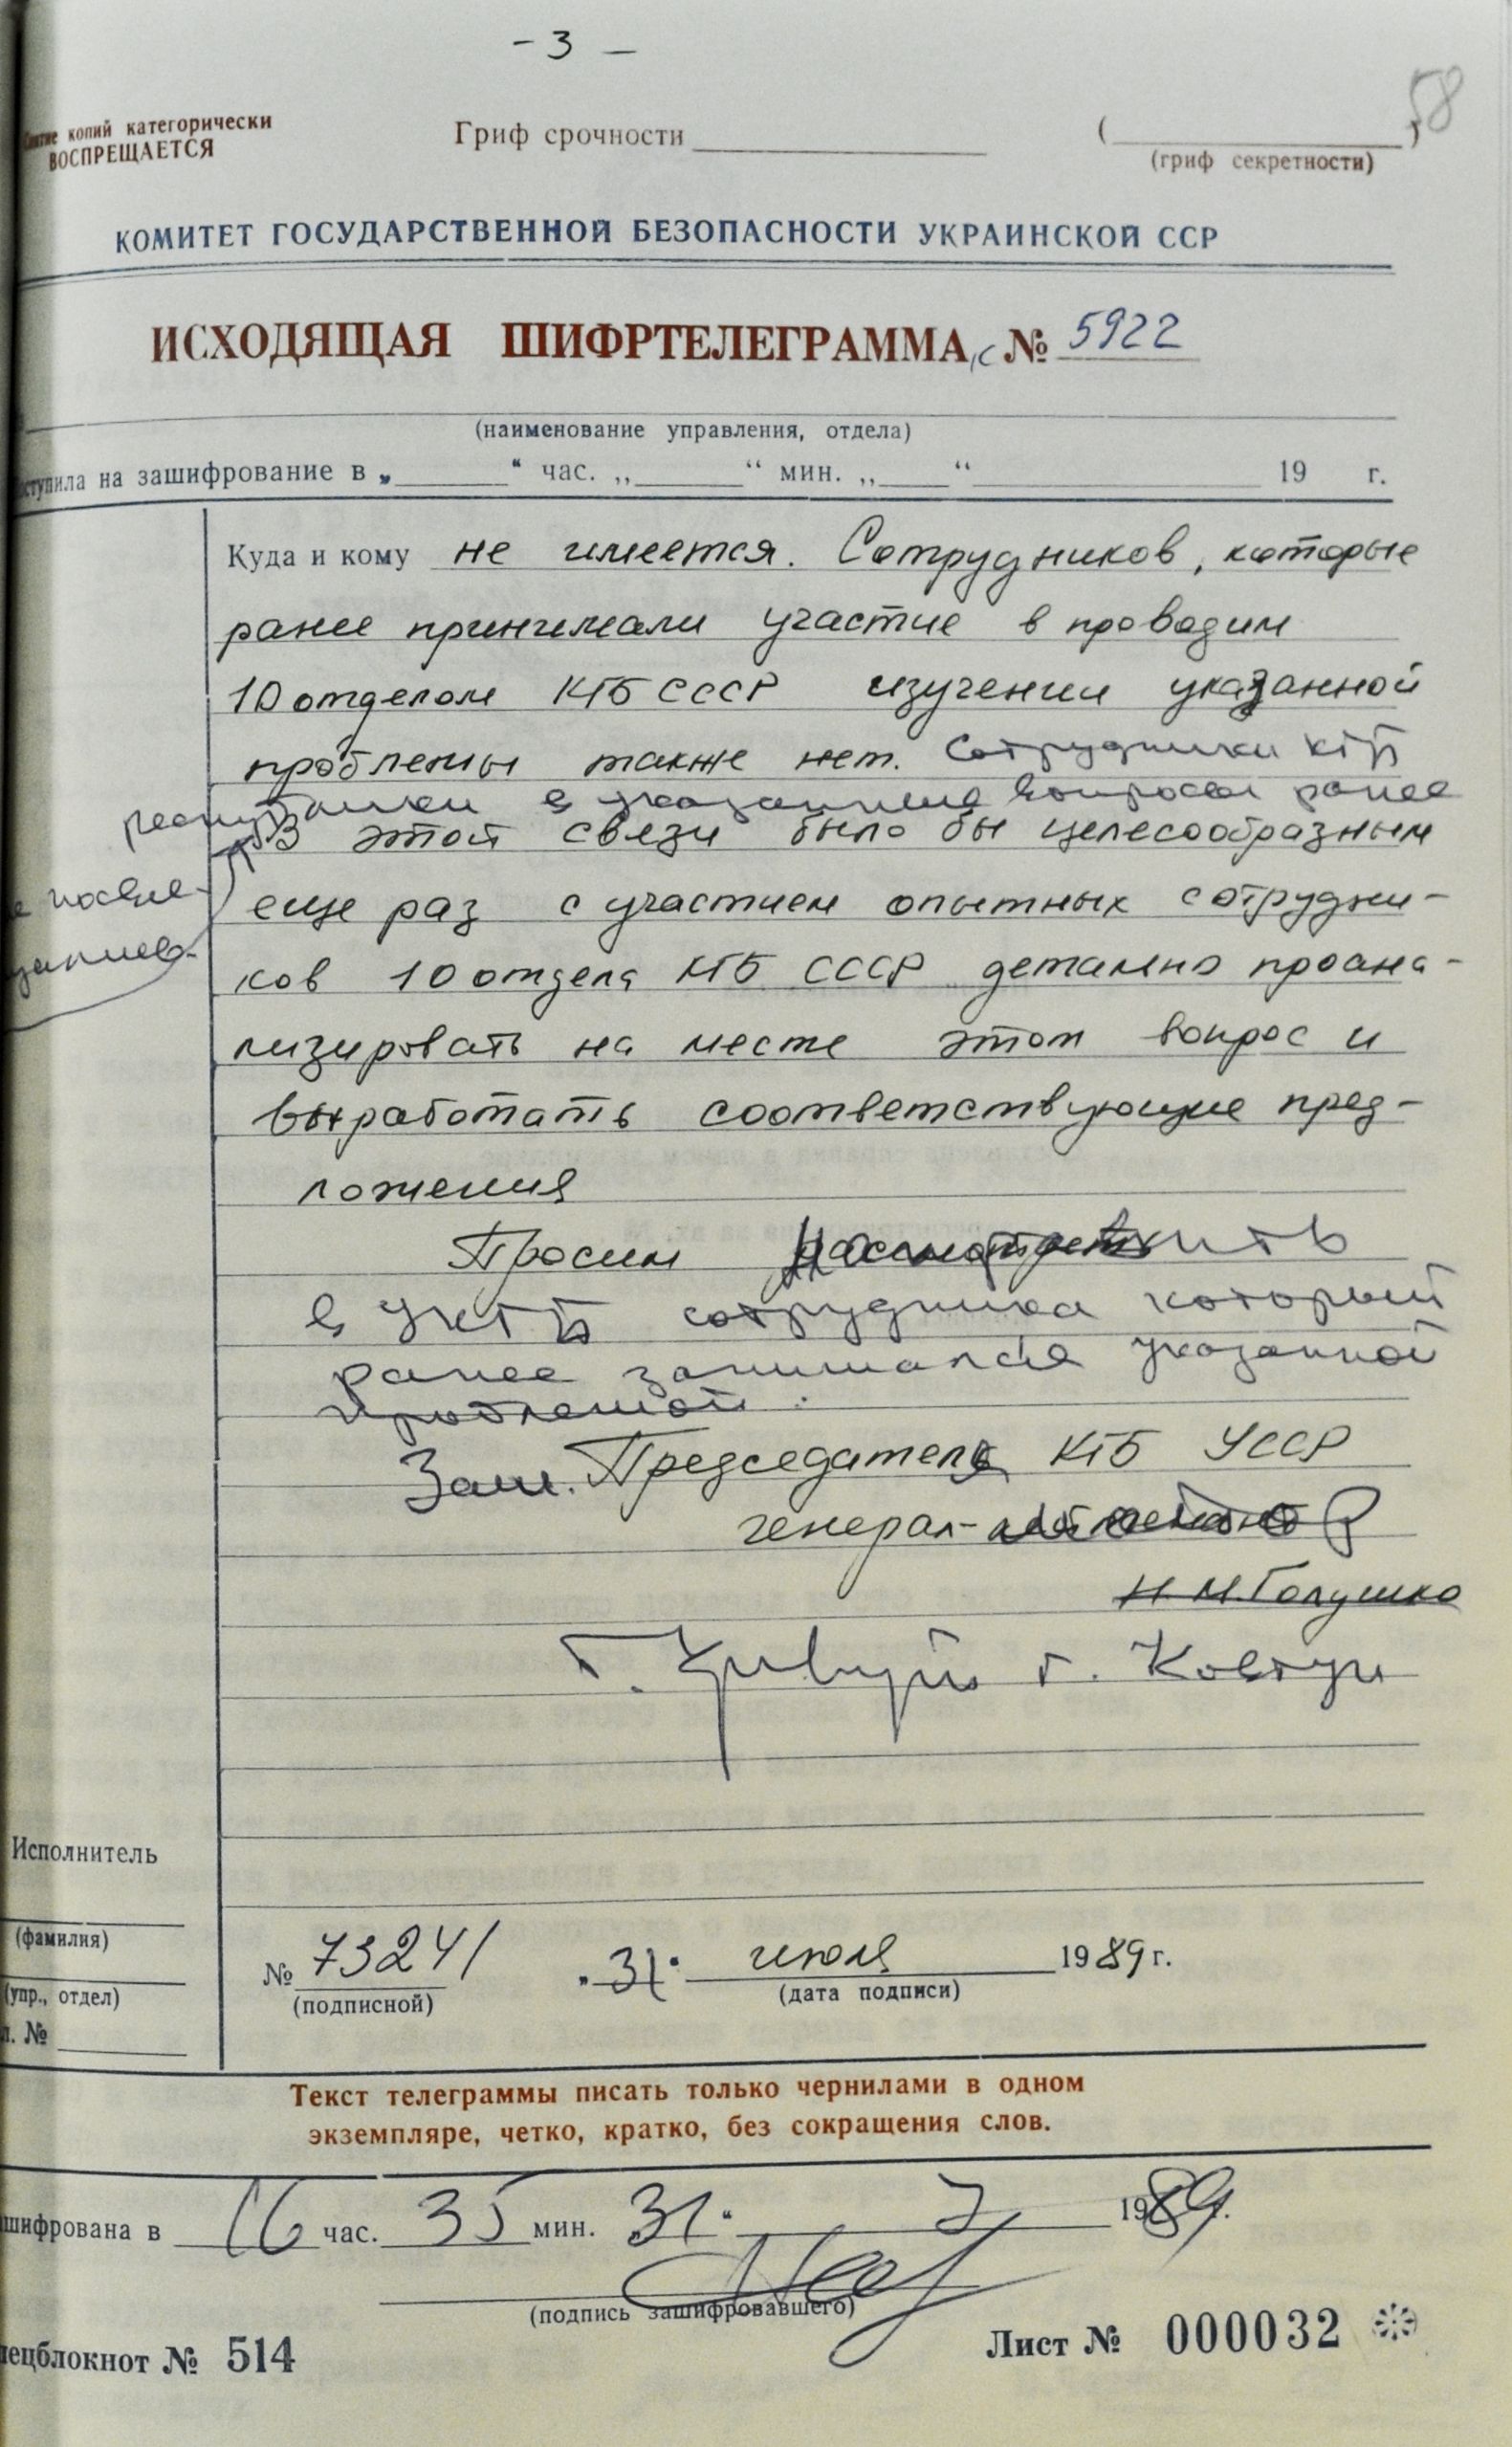 - 3 -
58
копий категорически
ВОСПРЕЩАЕТСЯ
Гриф срочности
(гриф секретности)
КОМИТЕТ ГОСУДАРСТВЕННОЙ БЕЗОПАСНОСТИ УКРАИНСКОЙ ССР
ИСХОДЯЩАЯ ШИФРТЕЛЕГРАММА № 5922
(наименование управления, отдела)
ступила на зашифрование в „ “ час. „ “ мин. „ “ 19 г.
Куда и кому не имеется. Сотрудников, которые
ранее принимали участие в проводим
10 отделом КГБ СССР изучении указанной
проблемы также нет. Сотрудники КГБ
республики в указанные вопросы ранее
не посвя-
В этой связи было бы целесообразным
еще раз с участием опытных сотрудни-
ков 10 отдела КГБ СССР детально проана-
лизировать на месте этот вопрос и
выработать соответствующие пред-
ложения
Просим
в УКГБ сотрудника который
ранее занимался указанной
проблемой.
Зам. Председателя КГБ УССР
генерал-
Н. М. Голушко
г. г. Ковтун
Исполнитель
(фамилия)
(упр., отдел)
№
№ 73241 „31“ июля 1989 г.
(подписной) (дата подписи)
Текст телеграммы писать только чернилами в одном
экземпляре, четко, кратко, без сокращения слов.
шифрована в 16 час. 35 мин. 31. 7 1989 г.
(подпись зашифровавшего)
пецблокнот № 514
Лист № 000032